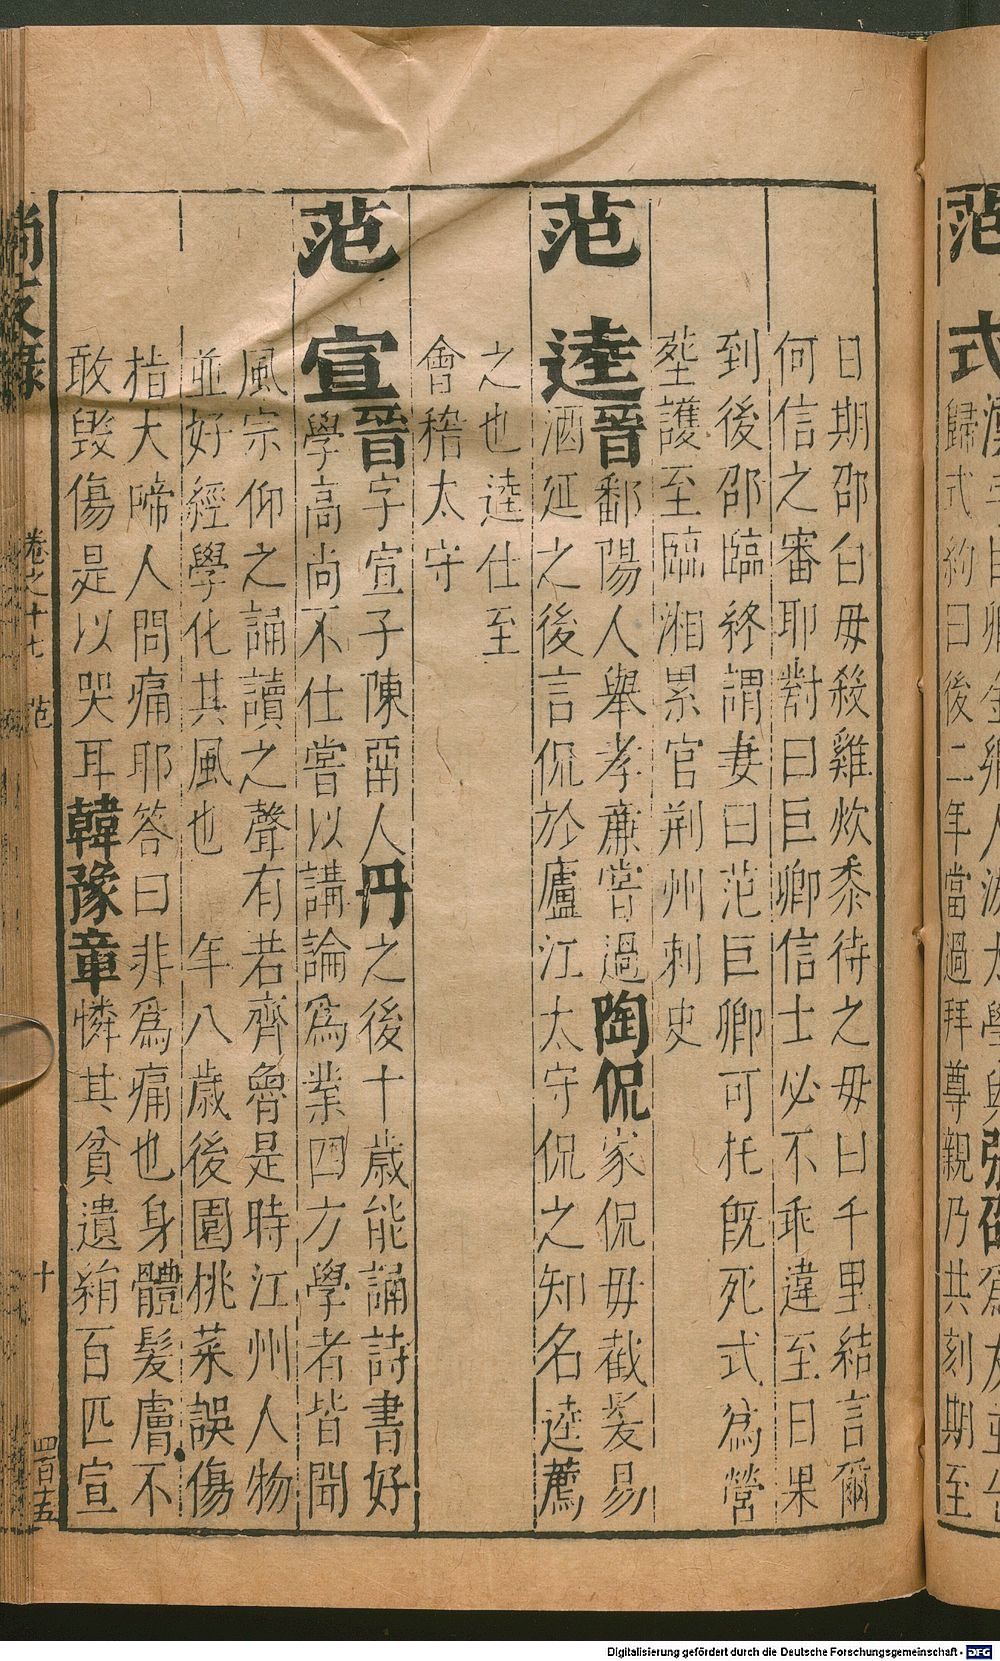 范式
歸式約曰後二年當過拜尊親乃共刻期至
日期邵白母殺雞炊黍待之母曰千里結言爾
何信之審耶對曰巨卿信士必不乖違至日果
到後邵臨終謂妻曰范巨卿可托既死式為營
塟護至臨湘累官荊州刺史
范逵晉鄱陽人舉孝亷嘗過陶侃家侃毋截髪易
酒延之後言侃於廬江太守侃之知名逵薦
之也逵仕至
會稽太守
范宣晉字宣子陳畱人丹之後十歲能誦詩書好
學高尚不仕嘗以講論爲業四方學者皆聞
風宗仰之誦讀之聲有若齊魯是時江州人物
並好經學化其風也 年八歲後園桃菜誤傷
指大啼人問痛耶答曰非爲痛也身體髪膚不
敢毀傷是以哭耳韓豫章憐其貧遺絹百匹宣
尚友錄 卷之十七 范 十 四百十五
Digitalisierung gefördert durch die Deutsche Forschungsgemeinschaft - DFG